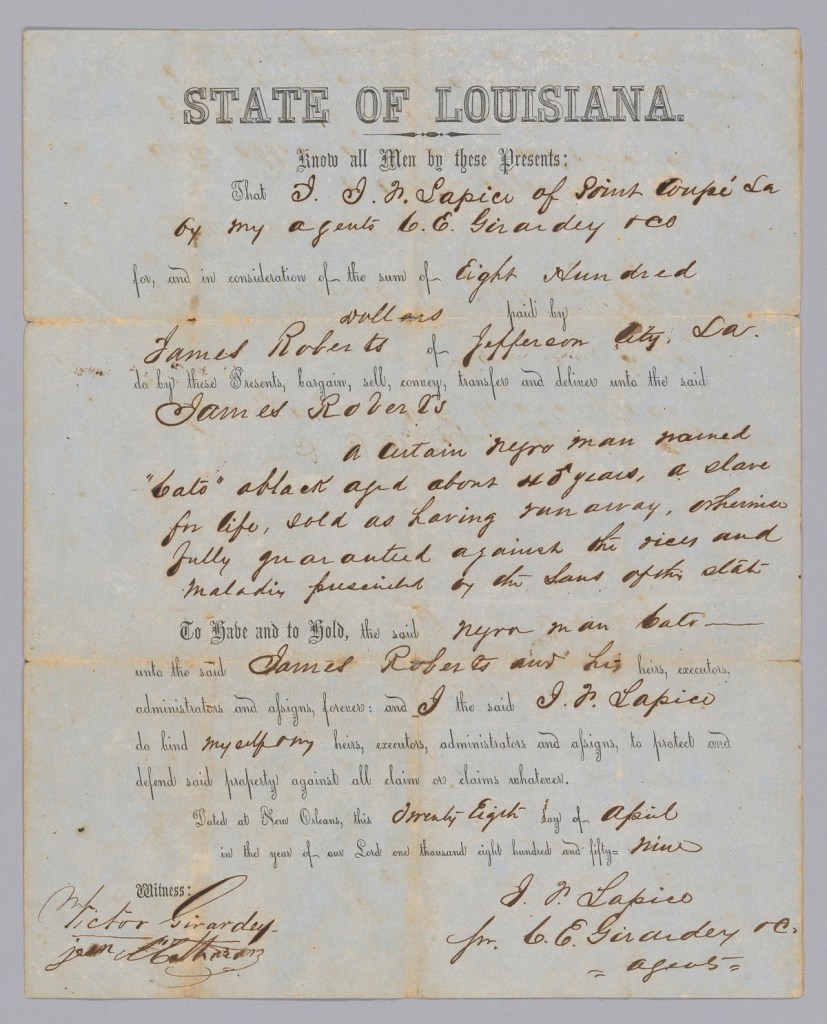 STATE OF LOUISIANA.
Know all Men by these Presents:
That I. J. F. Lapice of Point Coupé La
by my agents C. E. Girardey & Co
for, and in consideration of the sum of Eight Hundred
dollars paid by
James Roberts of Jefferson City, La.
do by these Presents, bargain, sell, convey, transfer and deliver unto the said
James Roberts
a certain negro man named
"Cato" a black aged about 45 years, a slave
for life, sold as having run away, otherwise
fully guaranteed against the vices and
maladies prescribed by the Laws of this state
To Have and to Hold, the said negro man Cato
unto the said James Roberts and his heirs, executors,
administrators and assigns, forever: and I the said J. F. Lapice
do bind myself & my heirs, executors, administrators and assigns, to protect and
defend said property against all claim or claims whatever.
Dated at New Orleans, this Twenty Eigth day of April
in the year of our Lord one thousand eight hundred and fifty= Nine
Witness:
J. F. Lapice
Victor Girardey
pr. C. E. Girardey & C.
= agents =